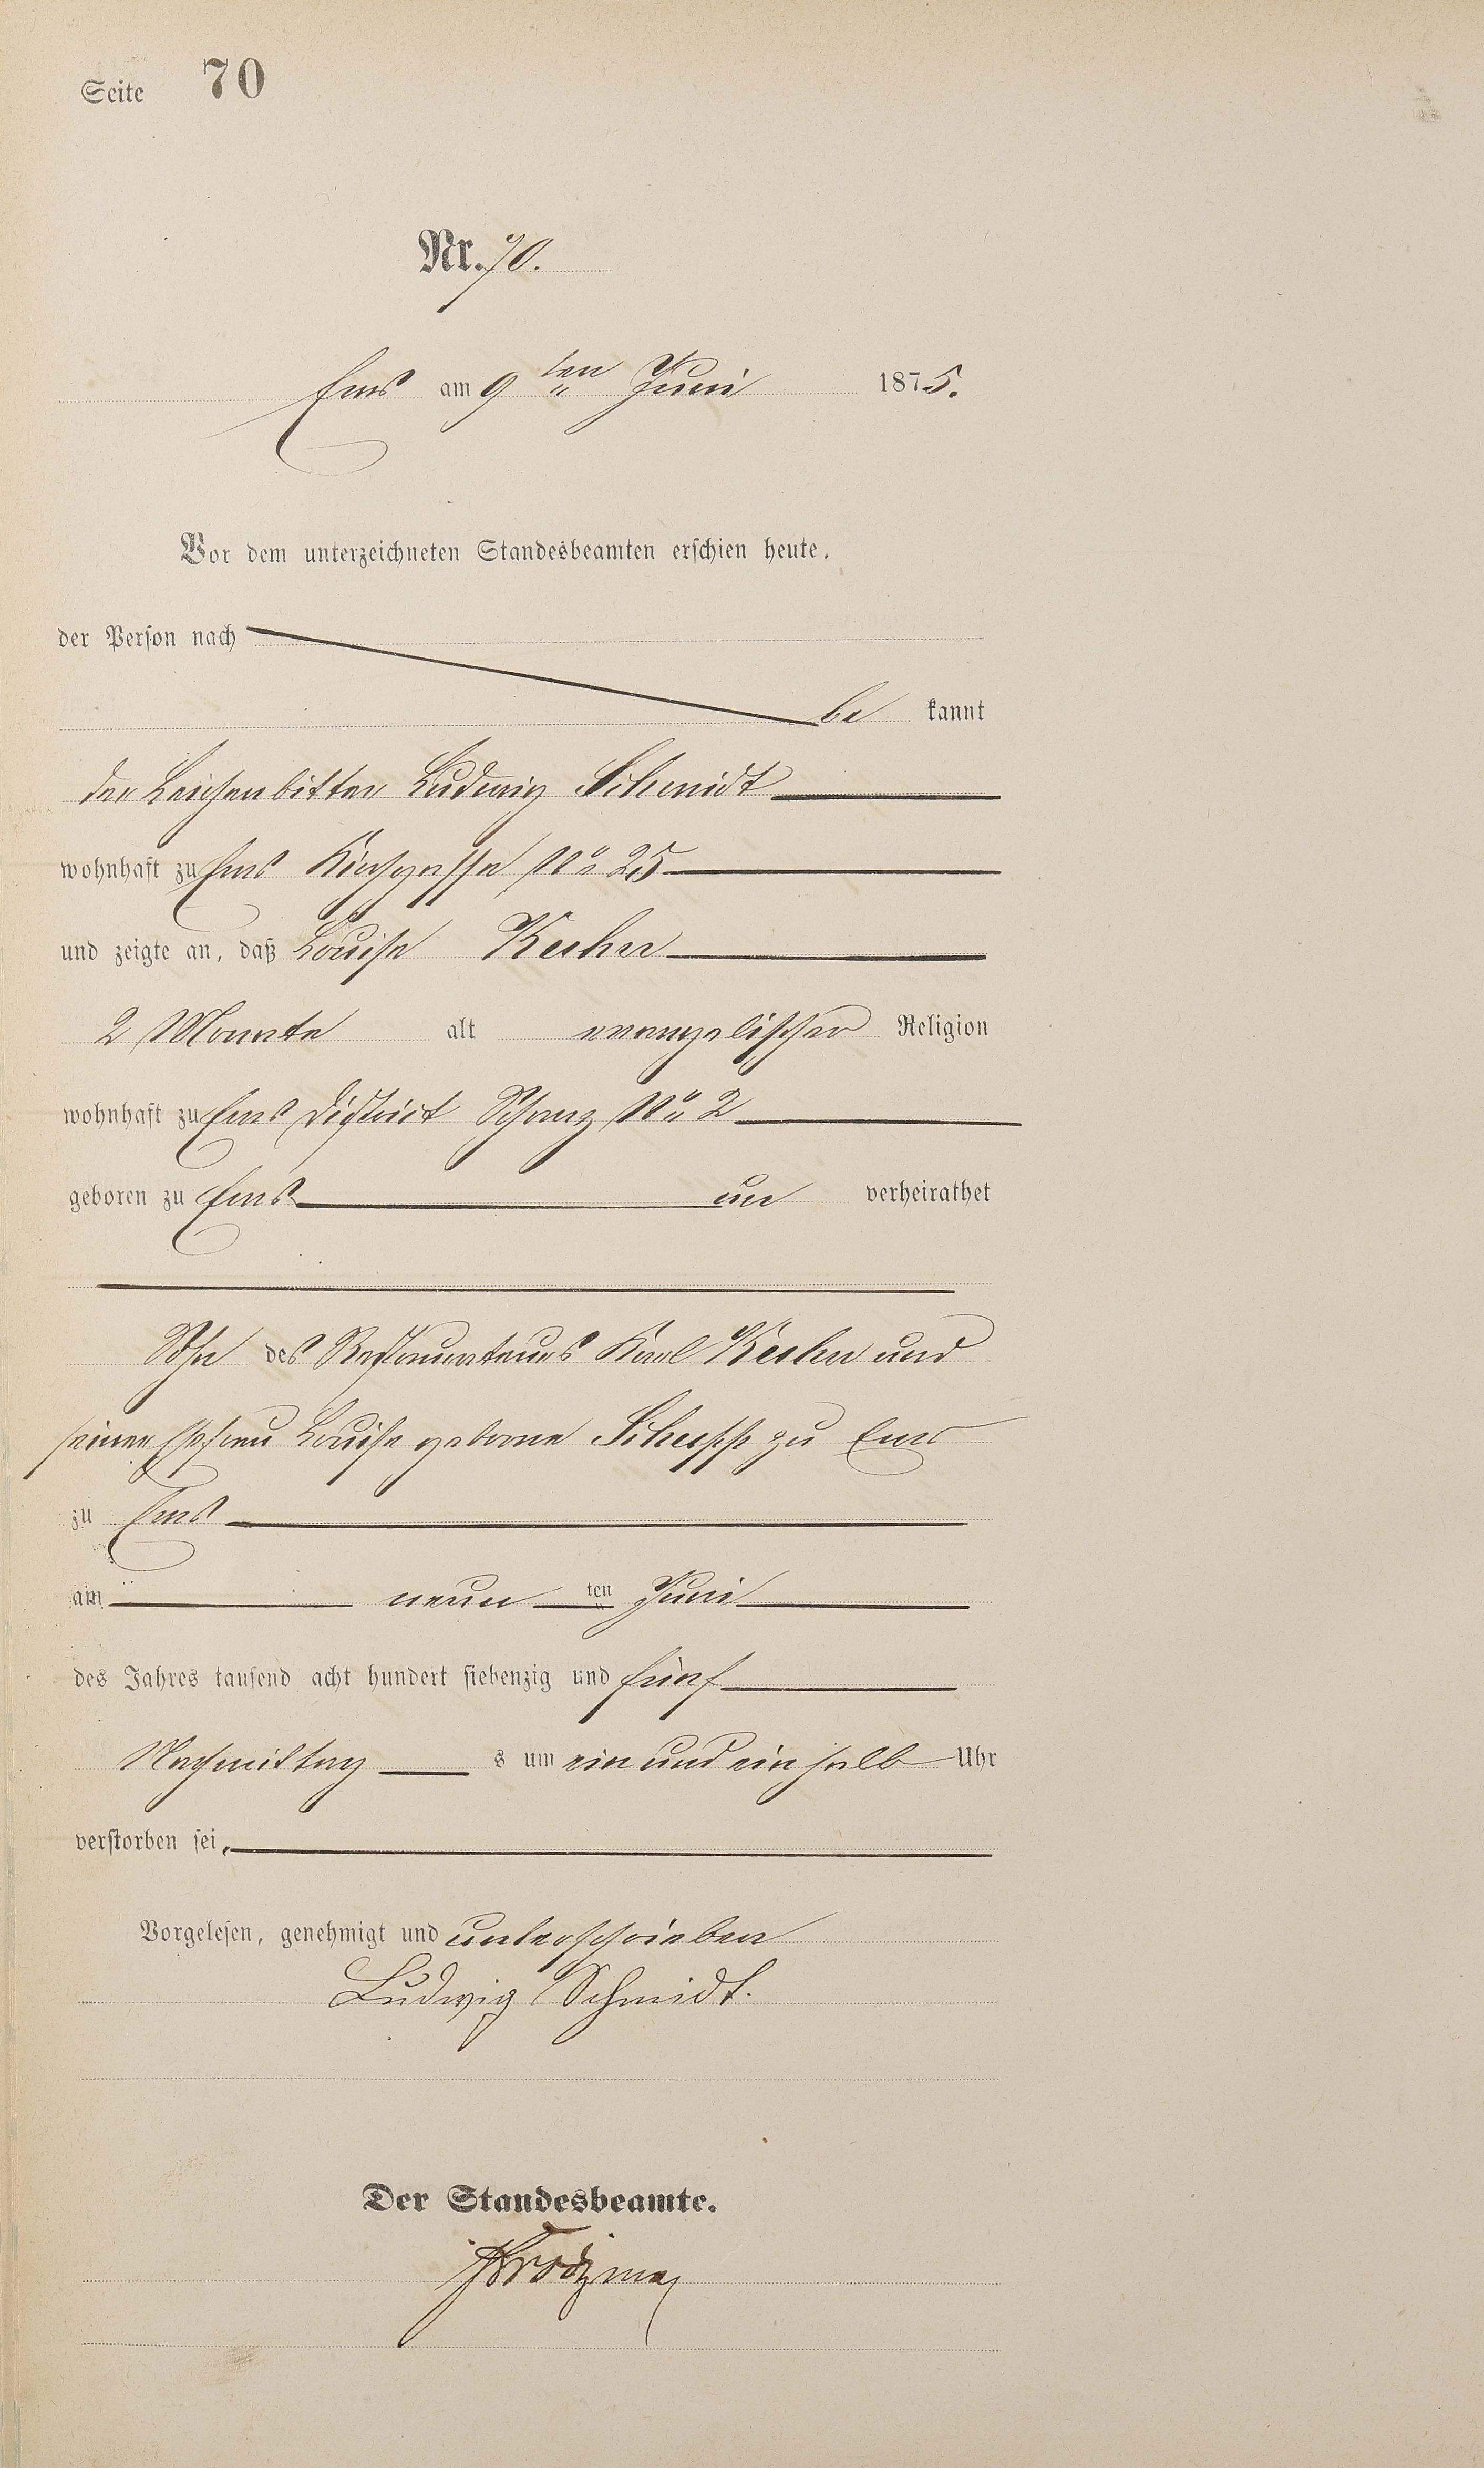 Seite 70
Nr. 70.
Ems am 9ten Juni 1875.
Vor dem unterzeichneten Standesbeamten erschien heute,
der Person nach
be kannt
der Leichenbitter Ludwig Schmidt
wohnhaft zu Ems Kirchgasse No 25
und zeigte an, daß Louise Kuhn
2 Monate alt evangelischer Religion
wohnhaft zu Ems District Schanz No 2
geboren zu Ems un verheirathet
des Restaurateurs Karl Kuhn und
seiner Ehefrau Louise geborne Schupp zu Ems
zu Ems
am neun ten Juni
des Jahres tausend acht hundert siebenzig und fünf
Nachmittag s um ein und ein halb Uhr
verstorben sei,
Vorgelesen, genehmigt und unterschrieben
Ludwig Schmidt.
Der Standesbeamte.